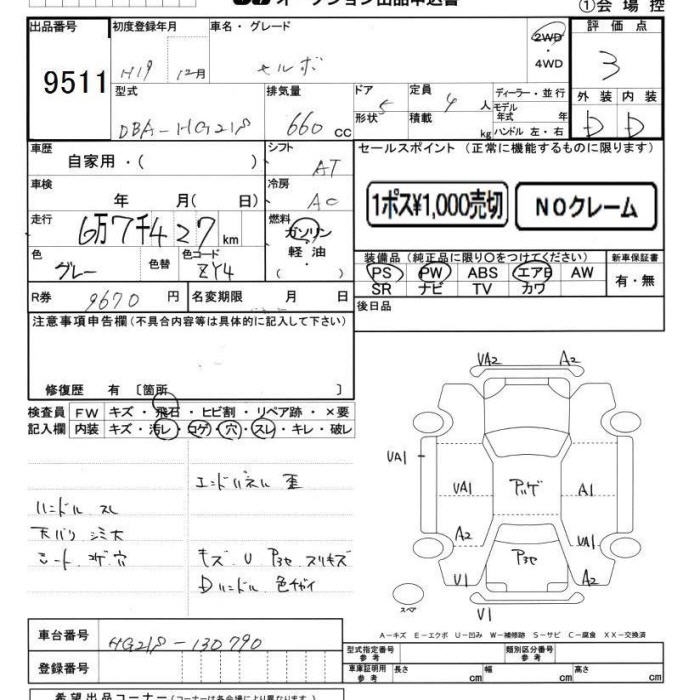 オークション出品申込書
①会場控
出品番号 初度登録年月 車名・グレード 2WD 4WD 評価点
9511 H19 12月 セルボ 3
型式 排気量 ドア 形状 定員 積載 ディーラー・並行 モデル年式 年 ハンドル 左・右 外装 内装
DBA-HG21S 660 CC 5 4 人 kg D D
車歴 自家用・( ) シフト AT セールスポイント (正常に機能するものに限ります)
車検 年 月( 日) 冷房 AC 1ポス¥1,000売切 NOクレーム
走行 6万7千427 km 燃料 ガソリン 軽油 ( )
色 グレー 色替 色コード ZY4 装備品 (純正品に限り○をつけてください) 新車保証書
PS PW ABS エアB AW 有・無
SR ナビ TV カワ
R券 9670 円 名変期限 月 日 後日品
注意事項申告欄(不具合内容等は具体的に記入して下さい)
修復歴 有 〔箇所 〕
検査員 FW キズ・飛石・ヒビ割・リペア跡・×要
記入欄 内装 キズ・汚レ・コゲ・穴・スレ・キレ・破レ
エンドパネル 歪
ハンドル スレ
天バリ シミ大
シート コゲ 穴
キズ U Pヨセ スリキズ
Dハンドル 色チガイ
VA2 A2
VA1 VA1 アゲ A1
A2 VA1
U1 Pヨセ A2
スペア V1
A-キズ E-エクボ U-凹み W-補修跡 S-サビ C-腐食 XX-交換済
車台番号 HG21S-130790
登録番号
型式指定番号 参考 類別区分番号 参考
車庫証明用 参考 長さ cm 幅 cm 高さ cm
希望出品コーナー(コーナーは各会場により異なります。)